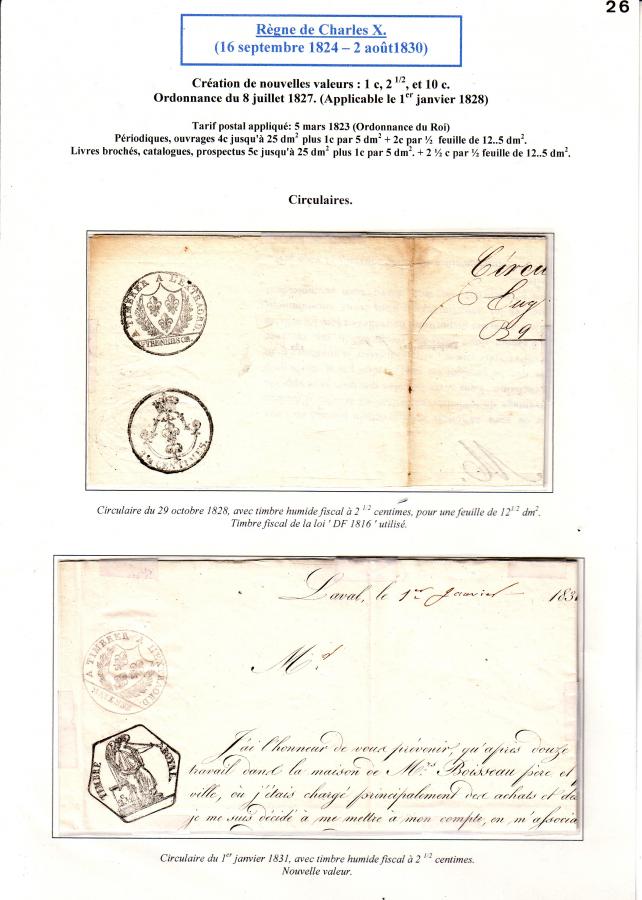 26
Règne de Charles X.
(16 septembre 1824 – 2 août1830)
Création de nouvelles valeurs : 1 c, 2 1/2, et 10 c.
Ordonnance du 8 juillet 1827. (Applicable le 1er janvier 1828)
Tarif postal appliqué: 5 mars 1823 (Ordonnance du Roi)
Périodiques, ouvrages 4c jusqu'à 25 dm2 plus 1c par 5 dm2 + 2c par ½ feuille de 12..5 dm2.
Livres brochés, catalogues, prospectus 5c jusqu'à 25 dm2 plus 1c par 5 dm2. + 2 ½ c par ½ feuille de 12..5 dm2.
Circulaires.
A TIMBRER A L'EXTRAORD.
Circu
Eug
CENTIMES.
Circulaire du 29 octobre 1828, avec timbre humide fiscal à 2 1/2 centimes, pour une feuille de 12 1/2 dm2.
Timbre fiscal de la loi ' DF 1816 ' utilisé.
Laval, le 1er Janvier 183
A TIMBRER A L'EXTRAORD
Md
TIMBRE ROYAL.
J'ai l'honneur de vous prévenir, qu'après douze
travail dans la maison de Mrs Boisseau père et
ville, où j'étais chargé principalement des achats et des
je me suis décidé à me mettre à mon compte, en m'associa
Circulaire du 1er janvier 1831, avec timbre humide fiscal à 2 1/2 centimes.
Nouvelle valeur.